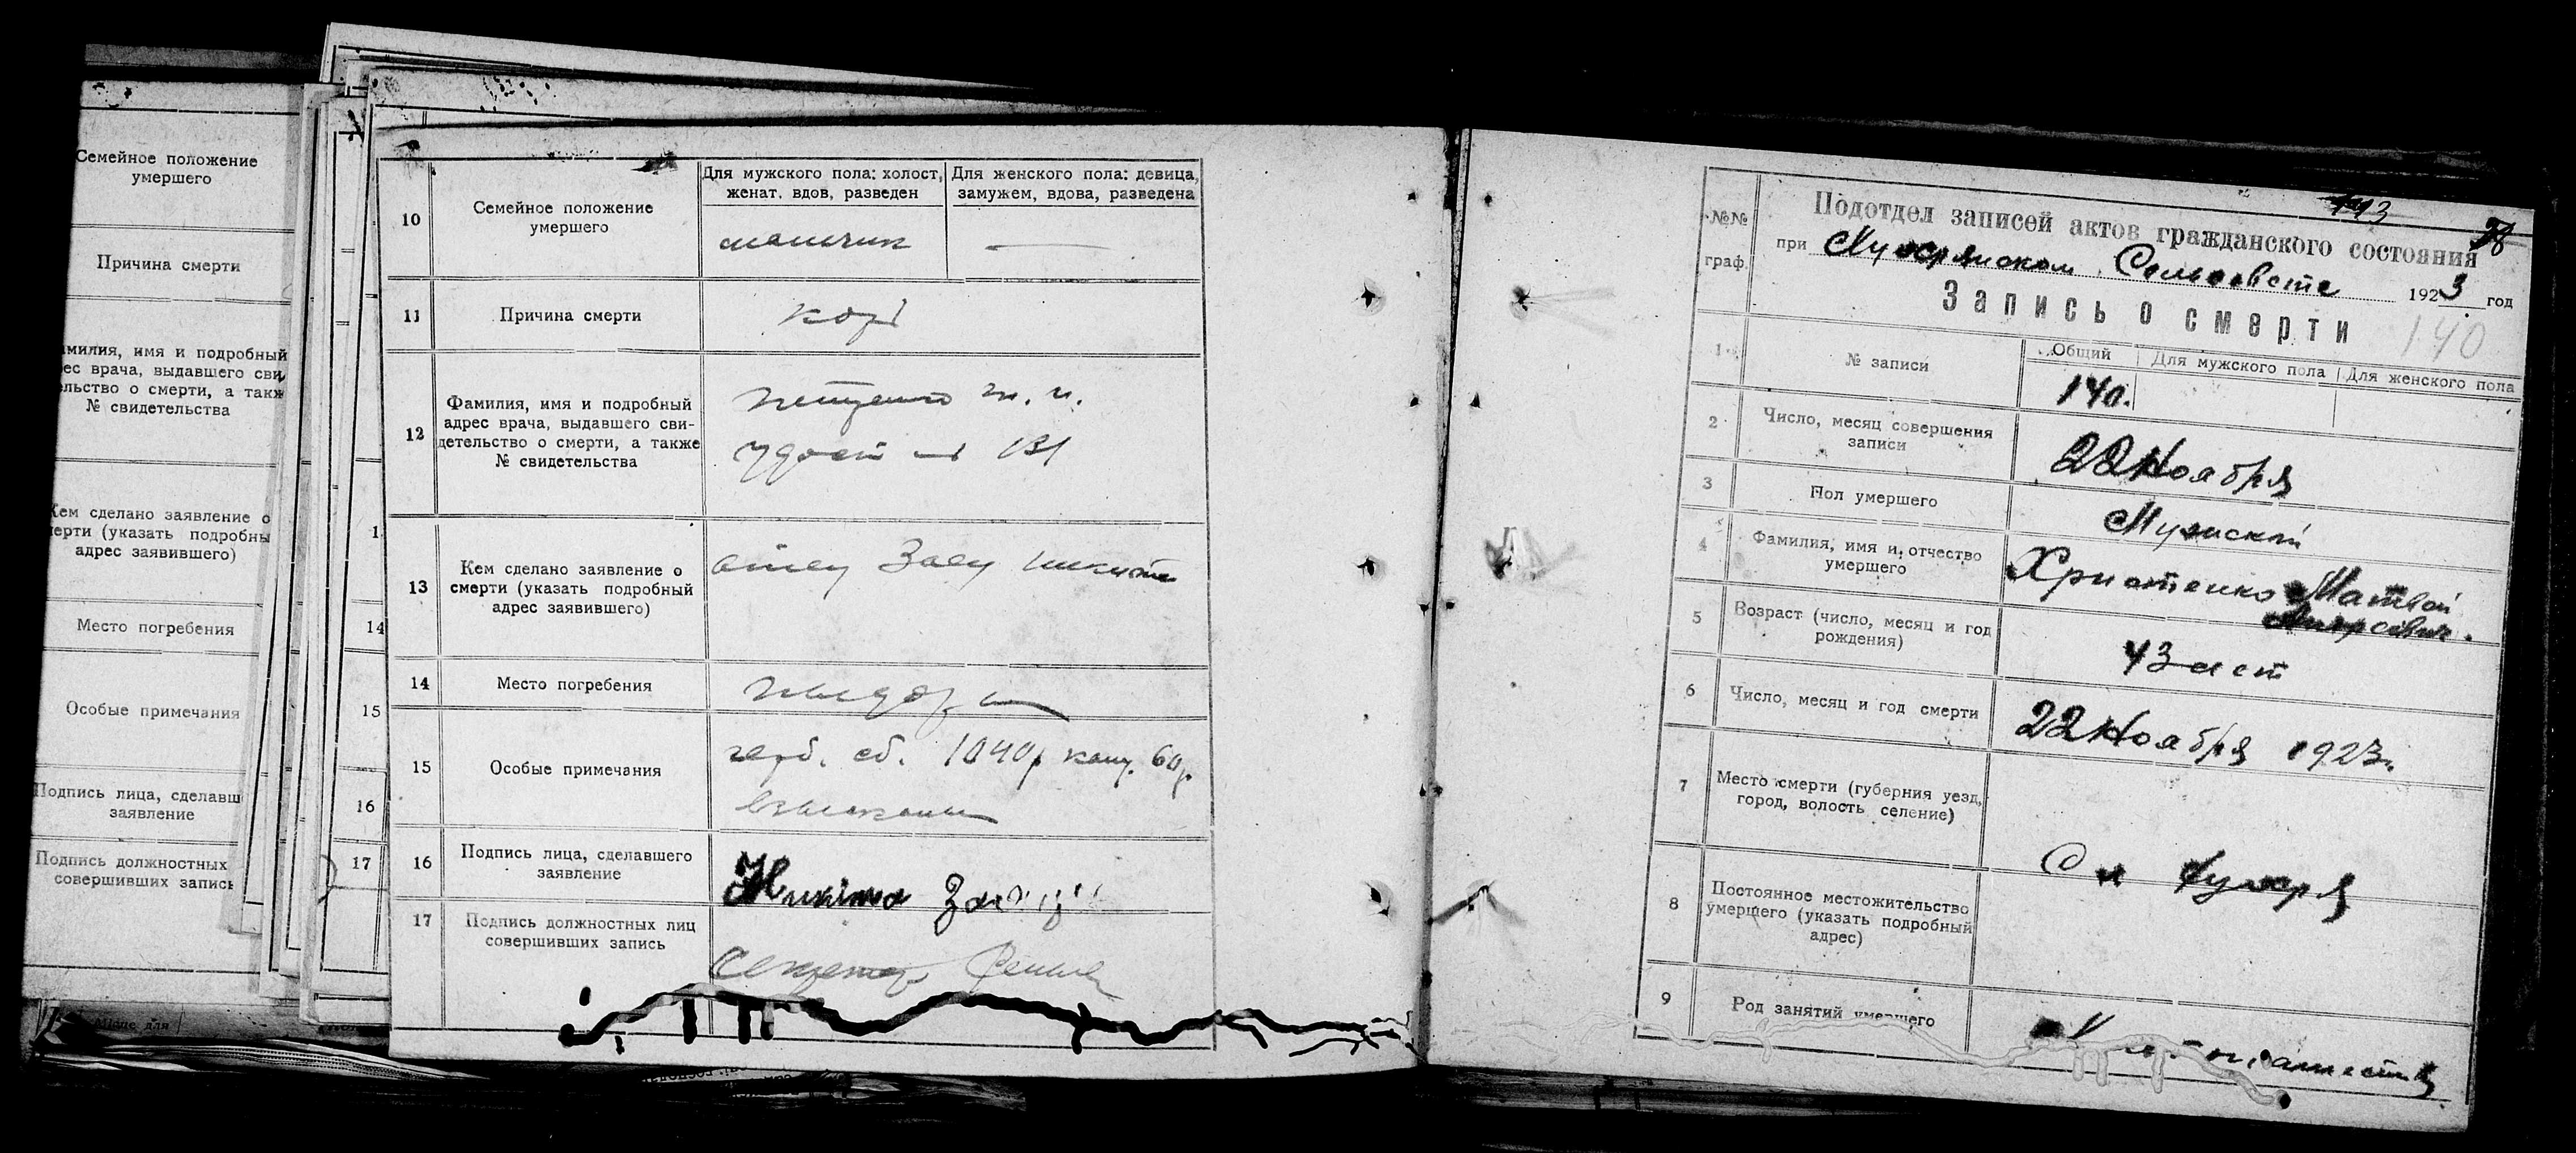 Семейное положение
умершего
Причина смерти
амилия, имя и подробный
ес врача, выдавшего сви
ельство о смерти, а такж
№ свидетельства
Кем сделано заявление о
мерти (указать подробны
адрес заявившего)
Место погребения
Особые примечания
Подпись лица, сделавш
заявление
Подпись должностных
совершивших запись
1
14
15
16
17
10
Семейное положение
умершего
Для мужского пола: холост,
женат, вдов, разведен
Для женского пола: девица,
замужем, вдова, разведена
мальчик
11
Причина смерти
корь
12
Фамилия, имя и подробный
адрес врача, выдавшего сви-
детельство о смерти, а также
№ свидетельства
удост 131
13
Кем сделано заявление о
смерти (указать подробный
адрес заявившего)
отец Заец Никита
14
Место погребения
15
Особые примечания
герб. сб. 1040р канц. 60р.
взысканы
16
Подпись лица, сделавшего
заявление
Никита
17
Подпись должностных лиц
совершивших запись
Секретарь
113
№№
граф.
Подотдел записей актов гражданского состояния
при Сельсовете 1923 год
Запись о смерти
140
1
№ записи
Общий
Для мужского пола
Для женского пола
140.
2
Число, месяц совершения
записи
22 Ноября
3
Пол умершего
Мужской
4
Фамилия, имя и отчество
умершего
Христенко Матвей
5
Возраст (число, месяц и год
рождения)
43 лет
6
Число, месяц и год смерти
22 Ноября 1923г.
7
Место смерти (губерния уезд,
город, волость селение)
8
Постоянное местожительство
умершего (указать подробный
адрес)
9
Род занятий умершего